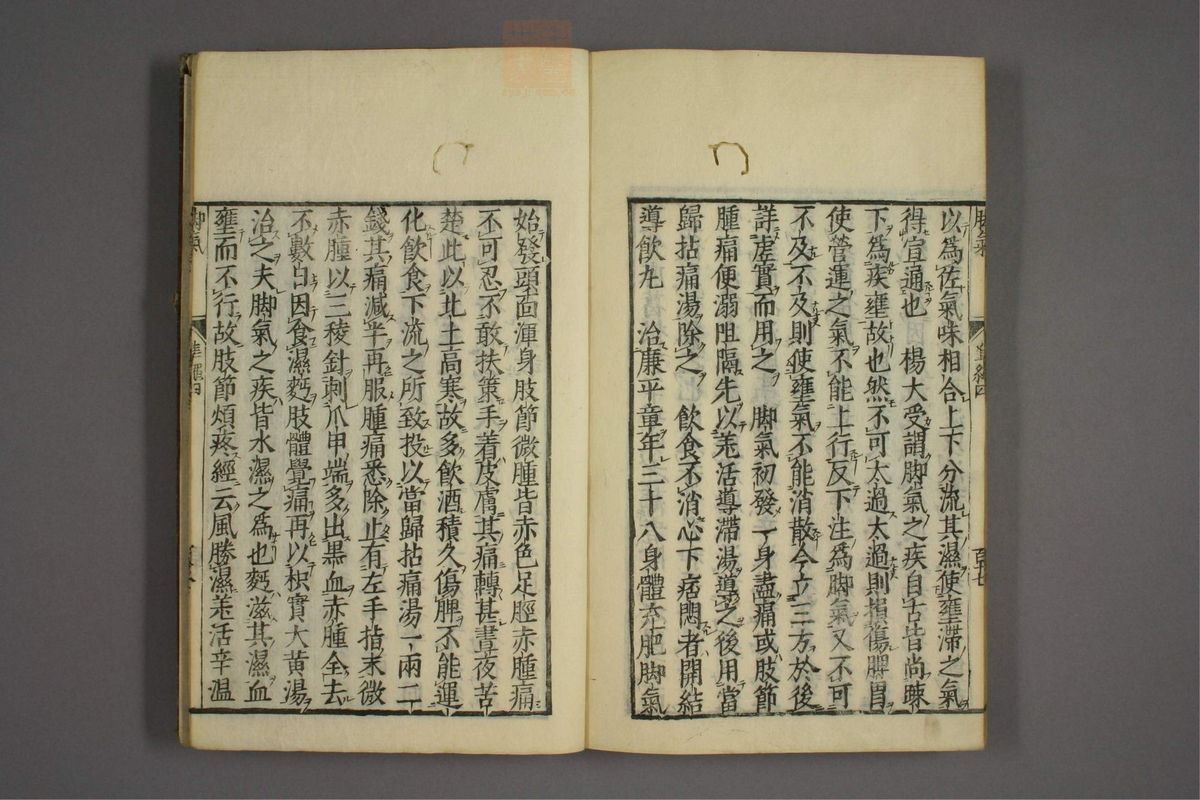 以爲佐氣味相合上下分流其濕使壅滯之氣
得宣通也　楊大受謂脚氣之疾自古皆尚疎
下爲疾壅故也然不可太過太過則損傷脾胃
使營運之氣不能上行反下注爲脚氣又不可
不及不及則使壅氣不能消散今立三方於後
詳虚實而用之　脚氣初發一身盡痛或肢節
腫痛便溺阻隔先以羌活導滯湯導之後用當
歸拈痛湯除之　飲食不消心下痞悶者開結
導飲丸　治廉平章年三十八身體充肥脚氣
始發頭面渾身肢節微腫皆赤色足脛赤腫痛
不可忍不敢扶策手着皮膚其痛轉甚晝夜苦
楚此以北土高寒故多飲酒積久傷脾不能運
化飲食下流之所致投以當歸拈痛湯一兩二
錢其痛減半再服腫痛悉除止有左手指末微
赤腫以三稜針刺爪甲端多出黒血赤腫全去
不數日因食濕麪肢體覺痛再以枳實大黄湯
治之夫脚氣之疾皆水濕之爲也麪滋其濕血
壅而不行故肢節煩疼經云風勝濕羌活辛温
脚氣